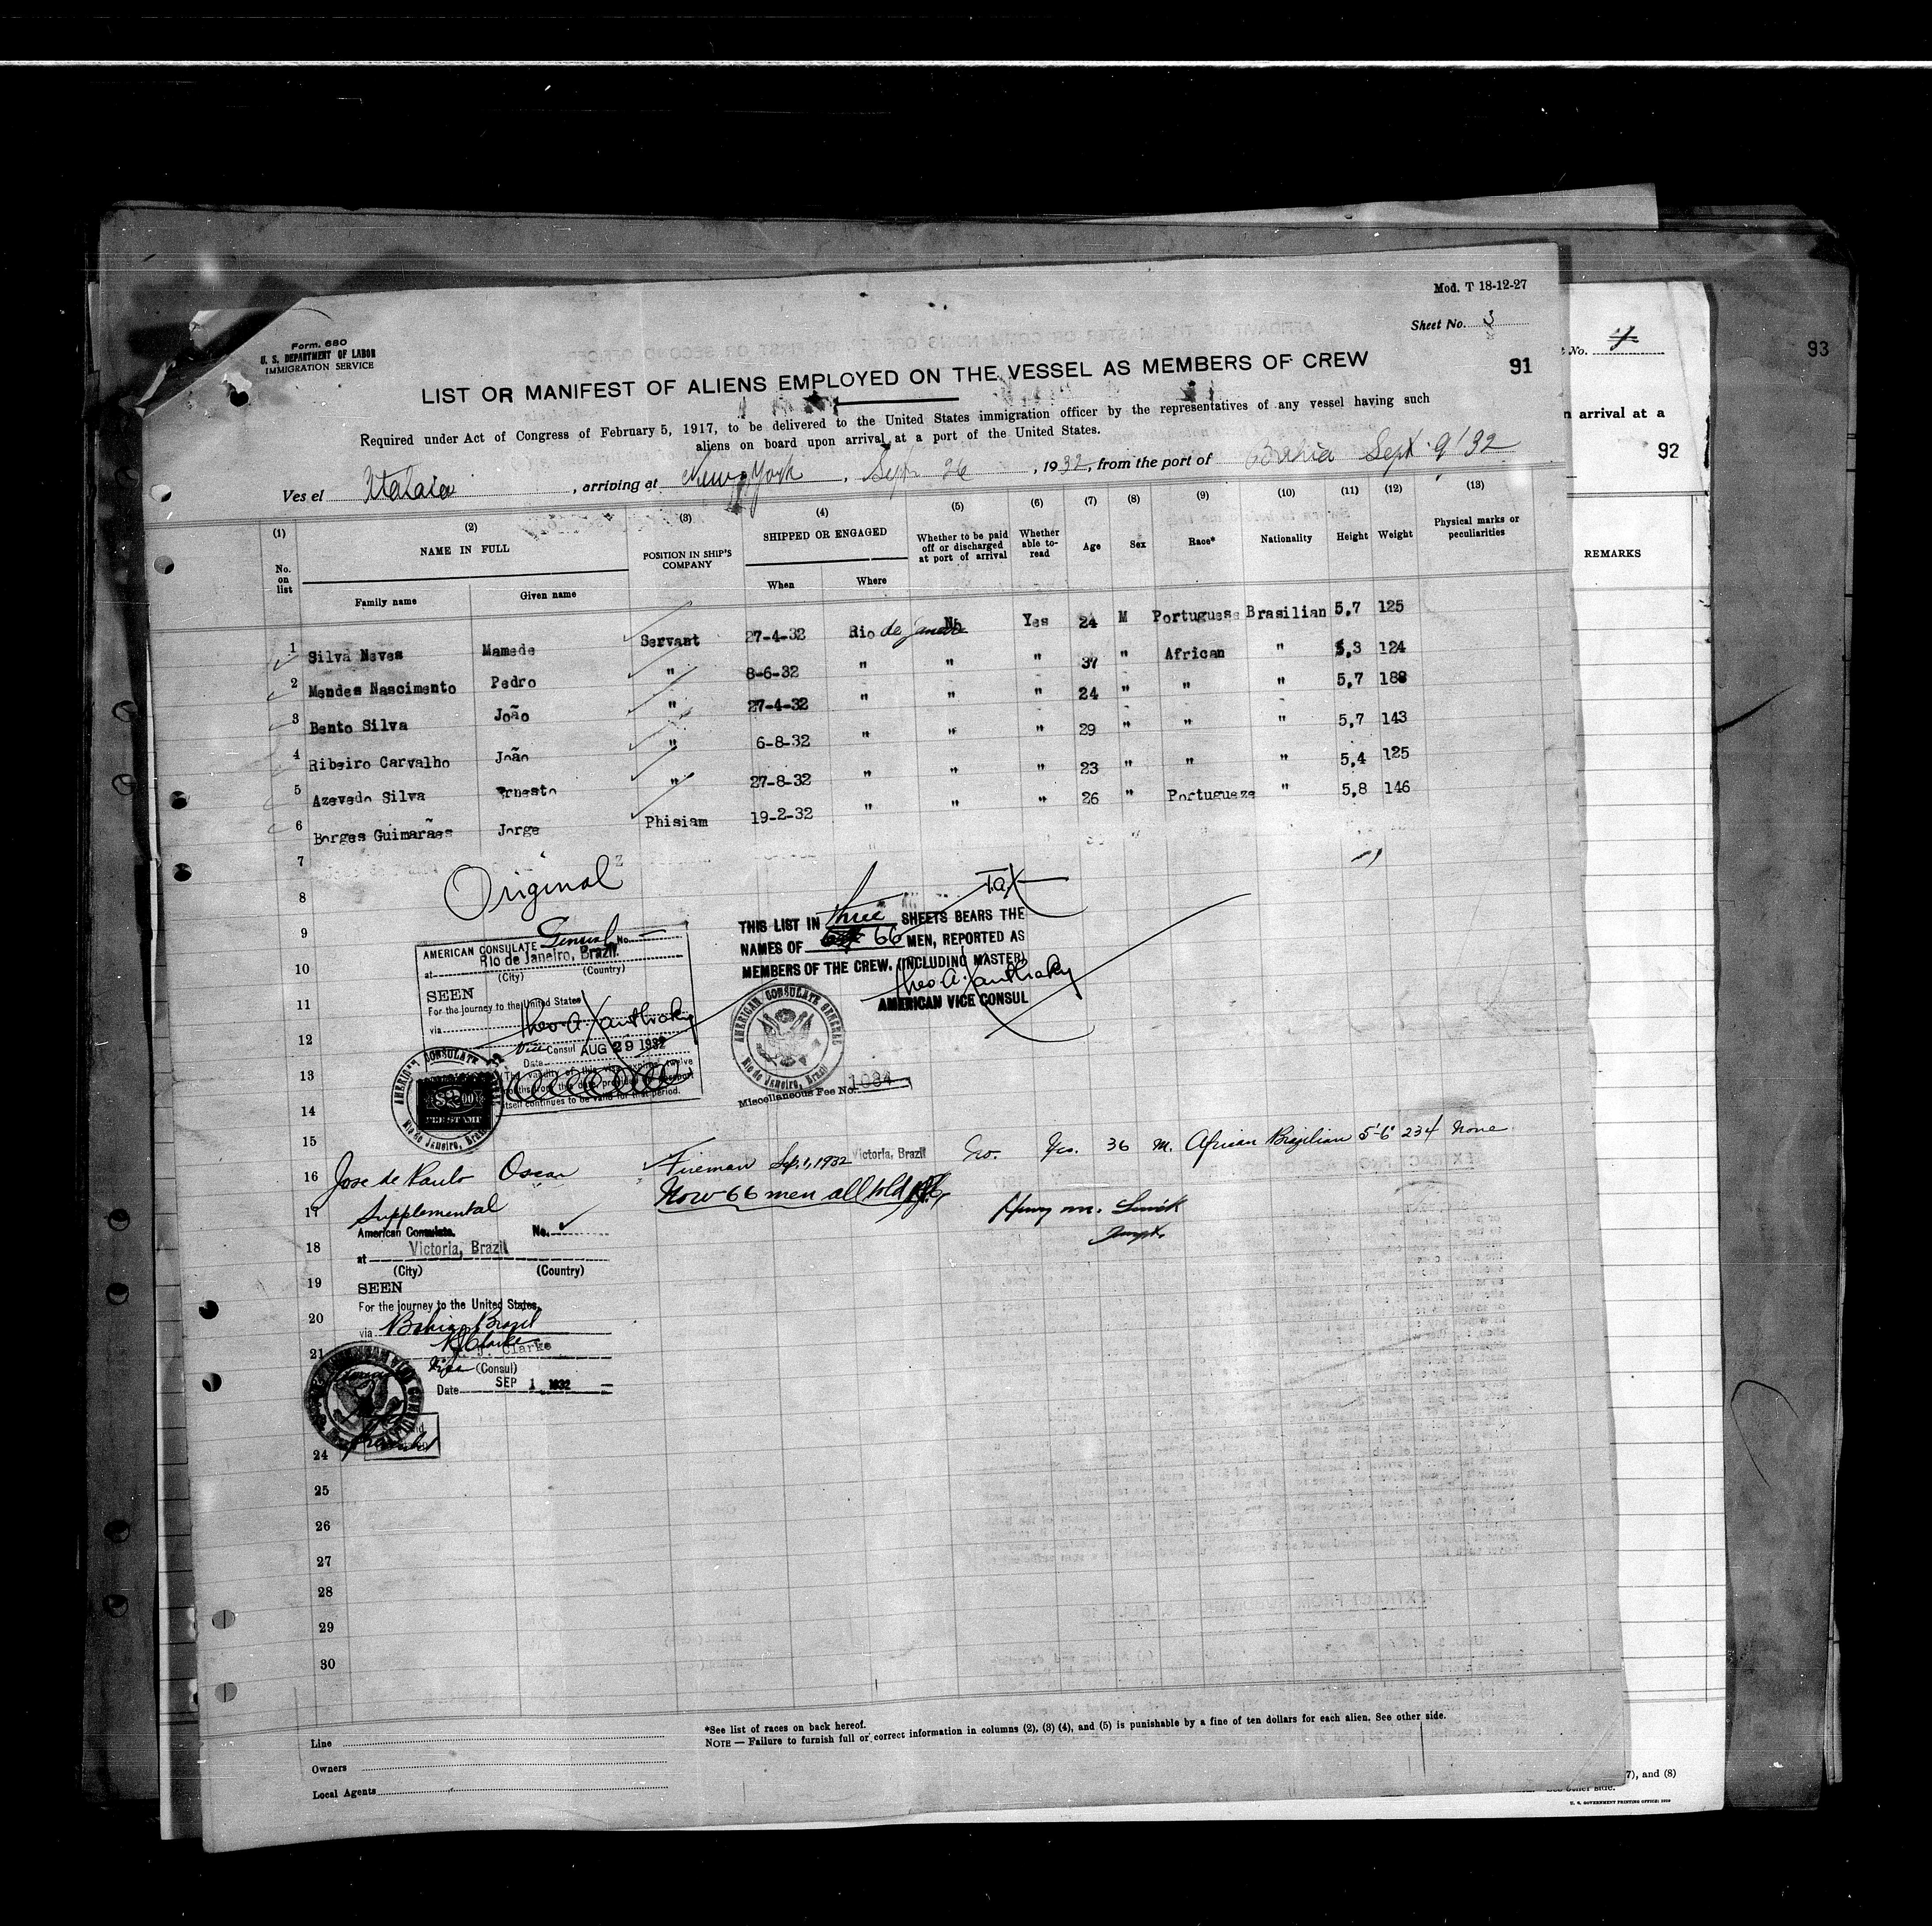 Mod. T 18-12-27
Sheet No. 3
Form. 680
U. S. DEPARTMENT OF LABOR
IMMIGRATION SERVICE
91
LIST OR MANIFEST OF ALIENS EMPLOYED ON THE VESSEL AS MEMBERS OF CREW
Required under Act of Congress of February 5, 1917, to be delivered to the United States immigration officer by the representatives of any vessel having such
aliens on board upon arrival at a port of the United States.
Ves el , arriving at New York , Sept. 26 , 1932, from the port of Bahia Sept. 9/32
(1) (2) (3) (4) (5) (6) (7) (8) (9) (10) (11) (12) (13)
No. on list NAME IN FULL Family name Given name POSITION IN SHIP'S COMPANY SHIPPED OR ENGAGED When Where Whether to be paid off or discharged at port of arrival Whether able to- read Age Sex Race* Nationality Height Weight Physical marks or peculiarities
1 Silva Neves Mamede Servant 27-4-32 Rio de Janeiro No Yes 24 M Portuguese Brasilian 5,7 125
2 Mendes Nascimento Pedro " 8-6-32 " " " 37 " African " 5,3 124
3 Bento Silva João " 27-4-32 " " " 24 " " " 5,7 188
4 Ribeiro Carvalho João " 6-8-32 " " " 29 " " " 5,7 143
5 Azevedo Silva Ernesto " 27-8-32 " " " 23 " " " 5,4 125
6 Borges Guimarães Jorge Phisiam 19-2-32 " " " 26 " Portugueze " 5,8 146
7
8 Original
9
10
11
12
13
14
15
AMERICAN CONSULATE General No.
at Rio de Janeiro, Brazil.
(City) (Country)
SEEN
For the journey to the United States
via
Theo A. Xanthaky
Vice Consul AUG 29 1932
Date
(The validity of this visa expires twelve
months from this date provided the passport
itself continues to be valid for that period.
AMERICAN CONSULATE
Rio de Janeiro, Brazil
$2.00
FEE STAMP
T.a.X
THIS LIST IN three SHEETS BEARS THE
NAMES OF 66 MEN, REPORTED AS
MEMBERS OF THE CREW. (INCLUDING MASTER)
Theo A. Xanthaky
AMERICAN VICE CONSUL
AMERICAN CONSULATE GENERAL
Rio de Janeiro, Brazil
Miscellaneous Fee No. 1084
16 Jose de Paulo Oscar Fireman Sep. 1, 1932 Victoria, Brazil No. Yes. 36 M. African Brazilian 5'-6" 234 None
Now 66 men all told
17 Supplemental
American Consulate. No.
18 at Victoria, Brazil
(City) (Country)
19 SEEN
For the journey to the United States,
20 via Bahia, Brazil
21 R. J. Clarke
Vice (Consul)
Date SEP 1 1932
Henry M.
24
25
26
27
28
29
30
*See list of races on back hereof.
NOTE — Failure to furnish full or correct information in columns (2), (3) (4), and (5) is punishable by a fine of ten dollars for each alien. See other side.
Line
Owners
Local Agents
No. 4
n arrival at a
92
REMARKS
7), and (8)
See other side.
U. S. GOVERNMENT PRINTING OFFICE: 1929
93